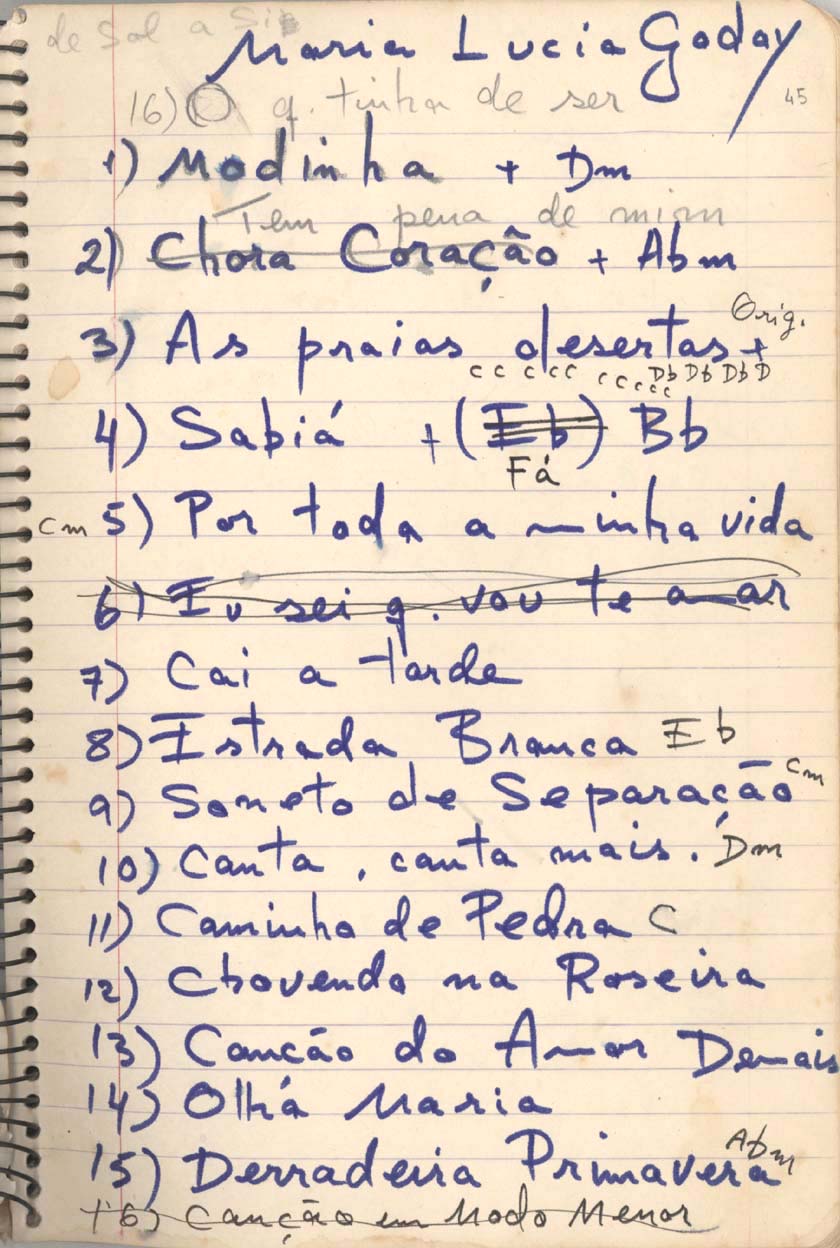 de Sol a Sol
Maria Lucia Godoy
45
16) O q. tinha de ser
1) Modinha + Dm
Tem pena de mim
2) Chora Coração + Abm
Orig.
3) As praias desertas +
c c c c c c c c c c c Db Db Db D
4) Sabiá + (Eb) Bb
Fá
Cm 5) Por toda a minha vida
6) Eu sei q. vou te amar
7) Cai a tarde
8) Estrada Branca Eb
9) Soneto de Separação Cm
10) Canta, canta mais. Dm
11) Caminho de Pedra C
12) Chovendo na Roseira
13) Canção do Amor Demais
14) Olhá Maria
15) Derradeira Primavera Abm
16) Canção em Modo Menor